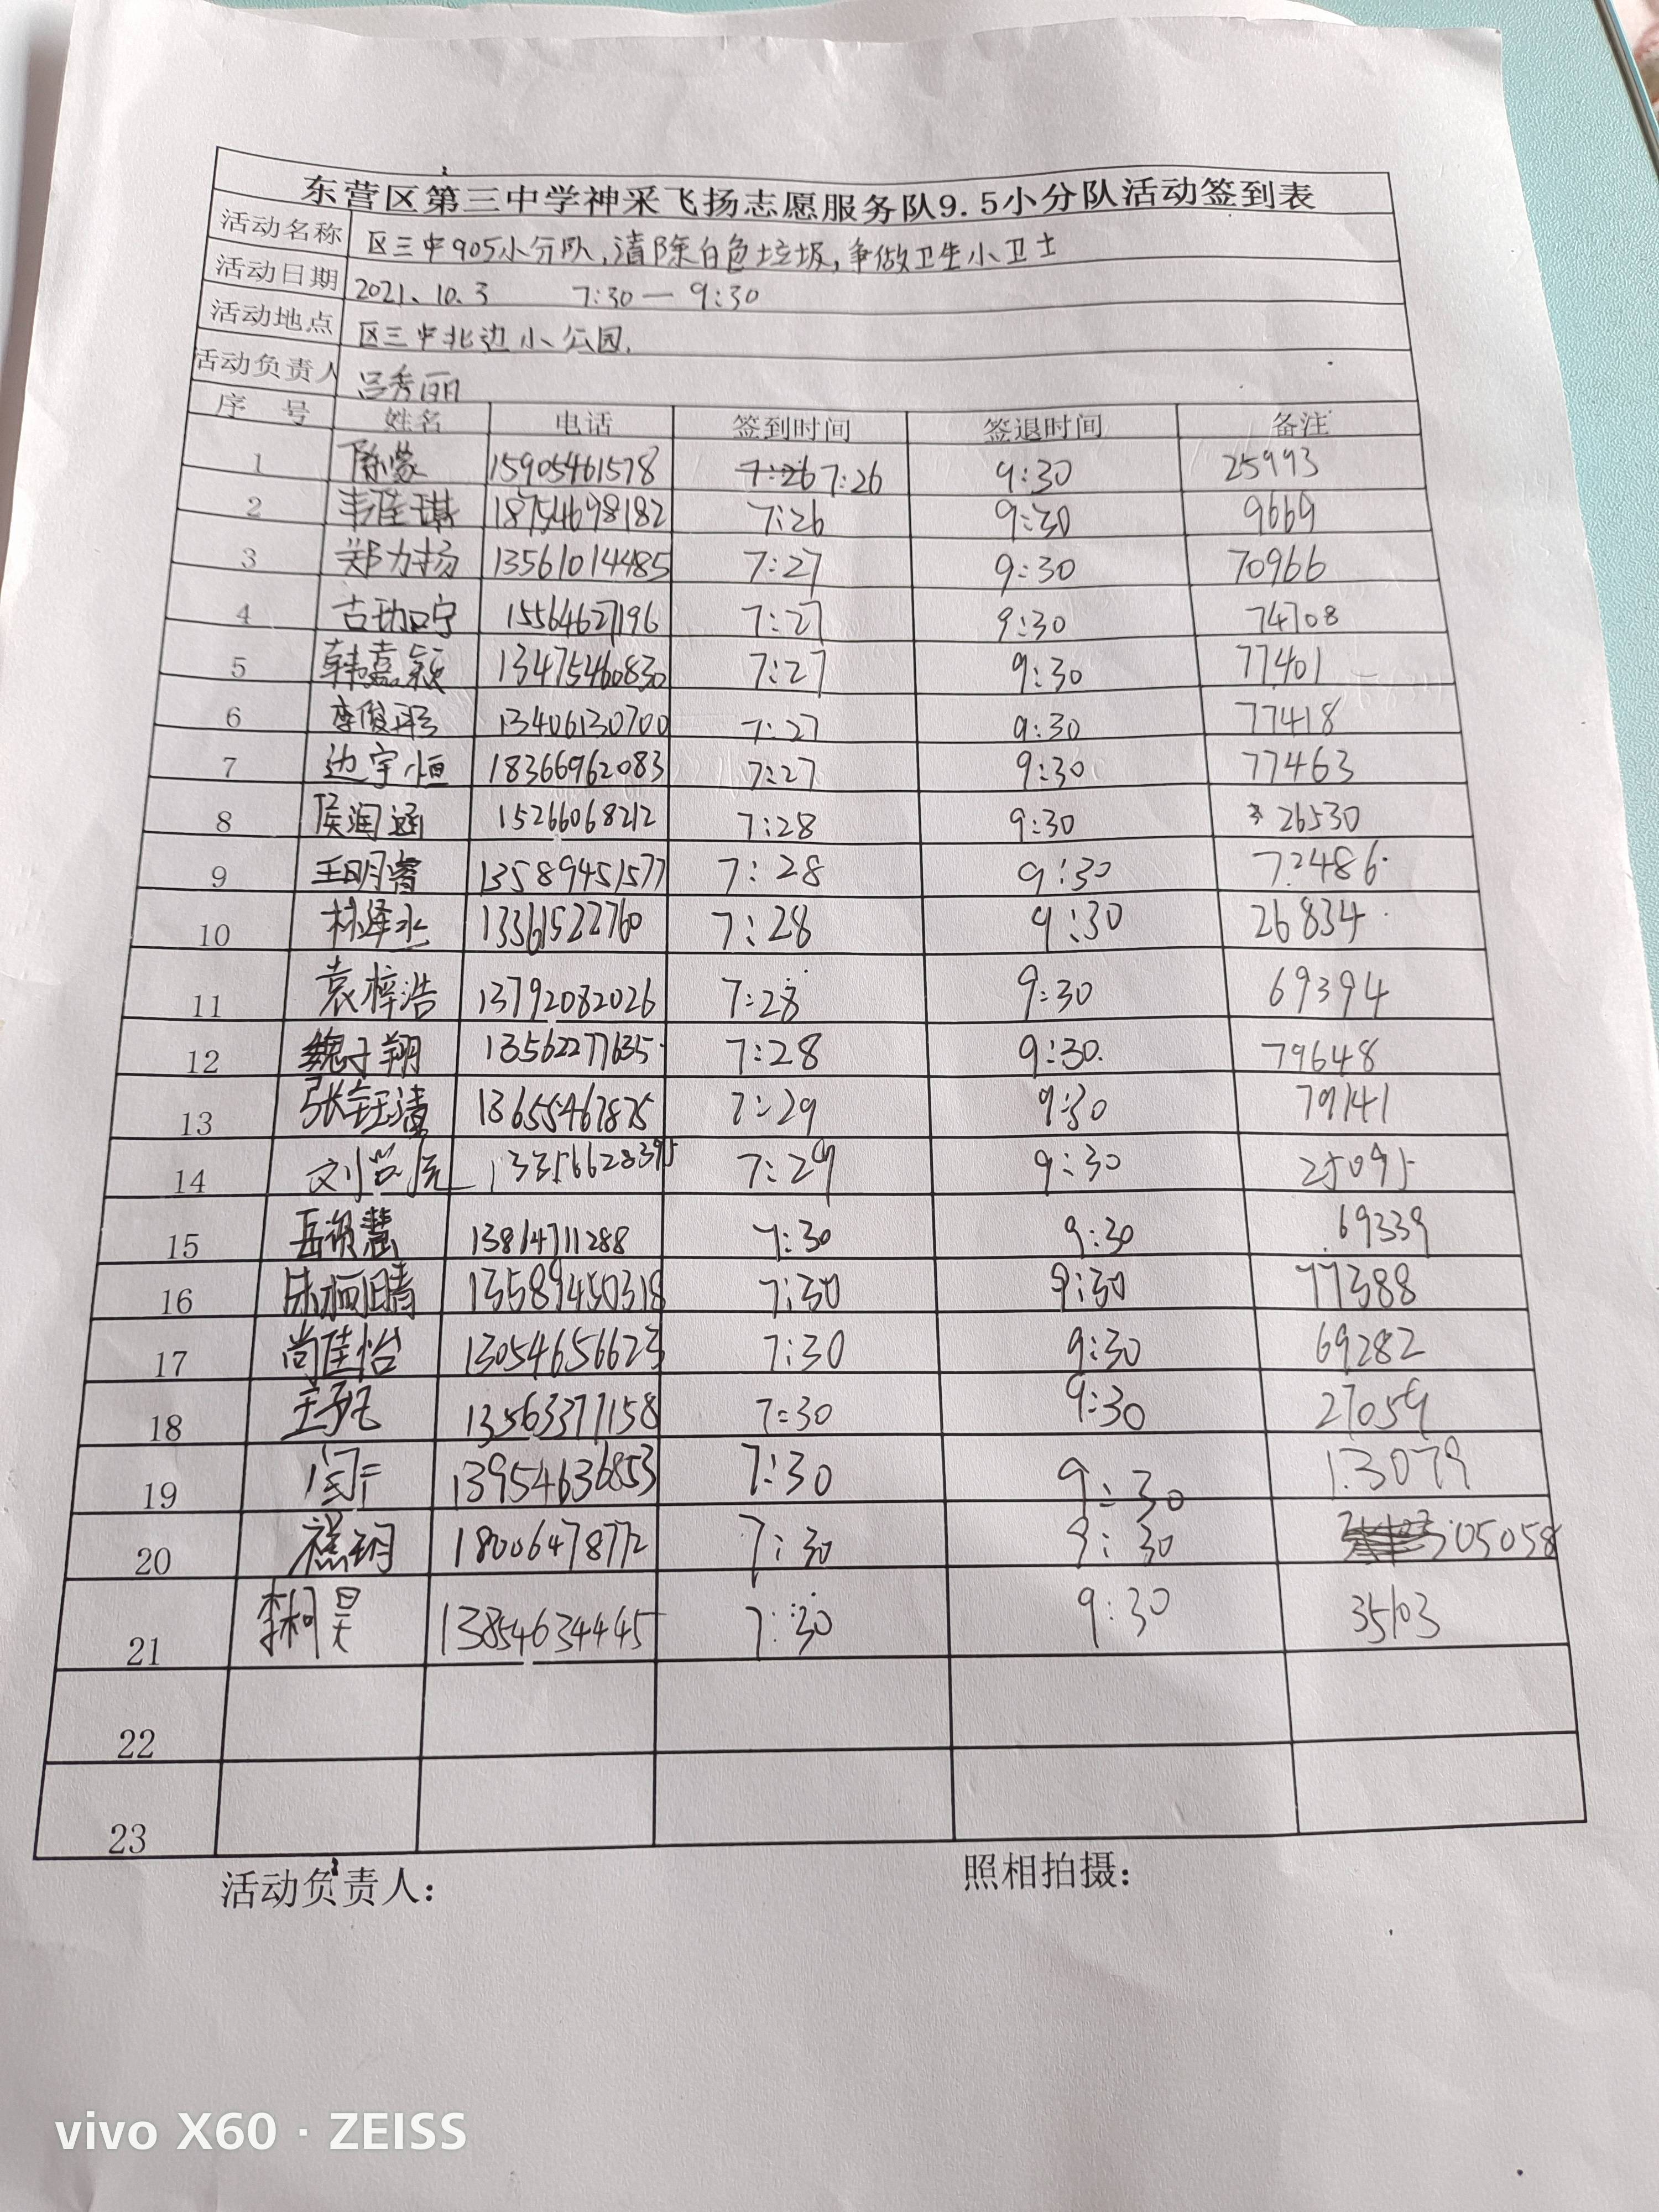 东营区第三中学神采飞扬志愿服务队9.5小分队活动签到表
活动名称 区三中905小分队,清除白色垃圾,争做卫生小卫士
活动日期 2021.10.3 7:30—9:30
活动地点 区三中北边小公园.
活动负责人 吕秀丽
序号 姓名 电话 签到时间 签退时间 备注
1 陈蒙 15905461578 7:26 7:26 9:30 25993
2 韦佳琪 18754698182 7:26 9:30 9669
3 郑力扬 13561014485 7:27 9:30 70966
4 15564627196 7:27 9:30 74708
5 韩嘉颖 13475460830 7:27 9:30 77401
6 李俊 13406130700 7:27 9:30 77418
7 边宇恒 18366962083 7:27 9:30 77463
8 侯润涵 15266068212 7:28 9:30 26530
9 王明睿 13589451577 7:28 9:30 72486
10 林泽丞 13361522760 7:28 9:30 26834
11 袁梓浩 13792082026 7:28 9:30 69394
12 魏子翔 13562277635 7:28 9:30 79648
13 张钰清 13655467875 7:29 9:30 79141
14 7:29 9:30 25095
15 13814711288 7:30 9:30 69339
16 13589450318 7:30 9:30 77388
17 尚佳怡 13054656623 7:30 9:30 69282
18 13563377158 7:30 9:30 27059
19 13954636853 7:30 9:30 13079
20 18006478772 7:30 9:30 305058
21 李柯昊 13854634445 7:30 9:30 35103
22
23
活动负责人: 照相拍摄:
vivo X60 · ZEISS